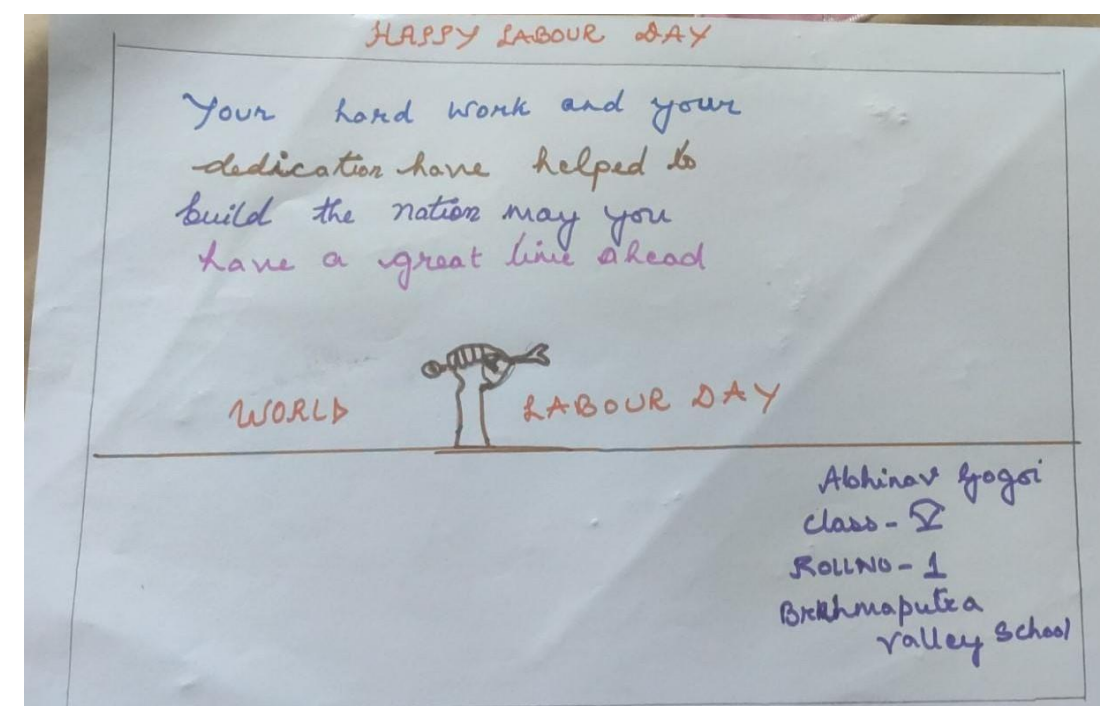 HAPPY LABOUR DAY
Your hard work and your
dedication have helped to
build the nation may you
have a great line ahead
WORLD LABOUR DAY
Abhinav Gogoi
Class - V
ROLLNO - 1
Brahmaputra
valley School